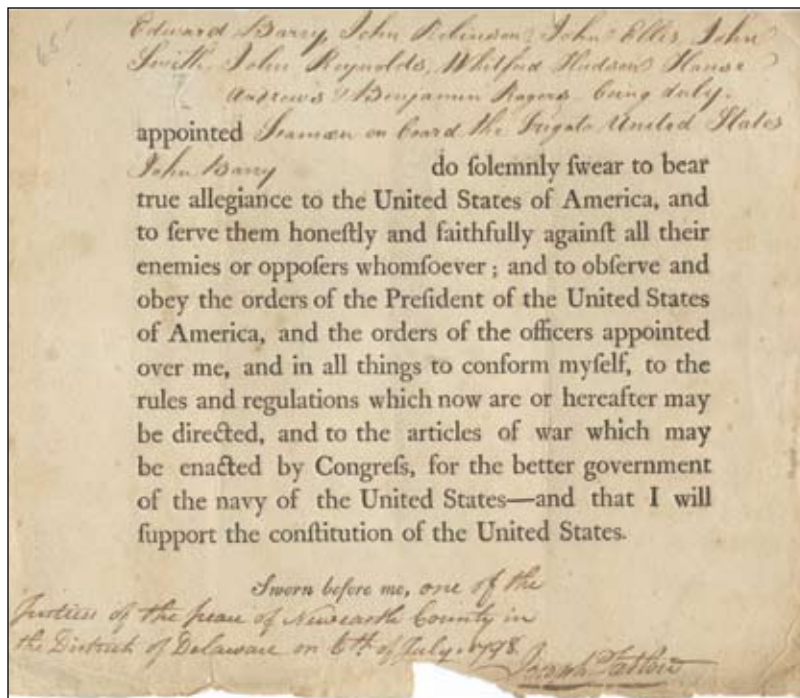 65
Edward Barry, John Robinson, John Ellis, John
Smith, John Reynolds, Whitford Hudson
Andrews & Benjamin Rogers being duly
appointed Seamen on board the Frigate United States
John Barry do ſolemnly ſwear to bear
true allegiance to the United States of America, and
to ſerve them honeſtly and faithfully againſt all their
enemies or oppoſers whomſoever; and to obſerve and
obey the orders of the Preſident of the United States
of America, and the orders of the officers appointed
over me, and in all things to conform myſelf, to the
rules and regulations which now are or hereafter may
be directed, and to the articles of war which may
be enacted by Congreſs, for the better government
of the navy of the United States—and that I will
ſupport the conſtitution of the United States.
Sworn before me, one of the
Justices of the peace of Newcastle County in
the District of Delaware on 6th of July 1798
Joseph Tatlow